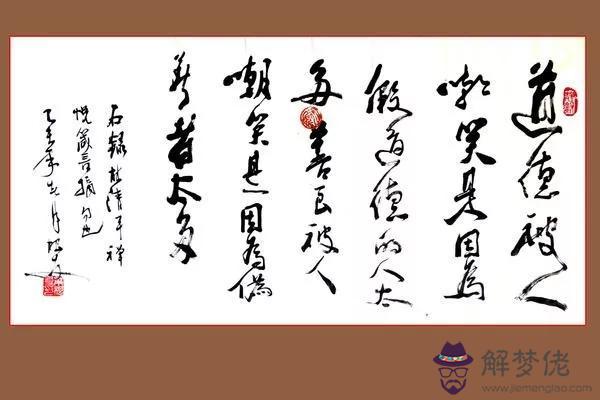 道德被人
嘲笑是因為
假道德的人太
多善良被人
嘲笑是因為偽
善者太多
箴言摘句也
解梦佬
www.jiemenglao.com